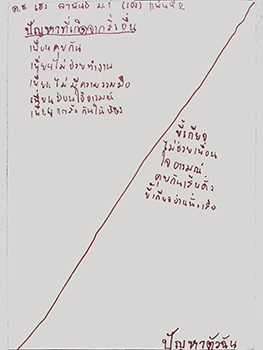 ปัญหาที่เกิดจากสิ่งอื่น
เพื่อนคุยกัน
เพื่อนไม่ช่วยทำงาน
เพื่อนไม่มีความร่วมมือ
เพื่อนชอบใช้อารมณ์
เพื่อนแกล้งกันในห้อง
ขี้เกียจ
ไม่ช่วยเพื่อน
ใจอารมณ์
คุยกันเสียงดัง
ขี้เกียจอ่านหนังสือ
ปัญหาตัวฉัน